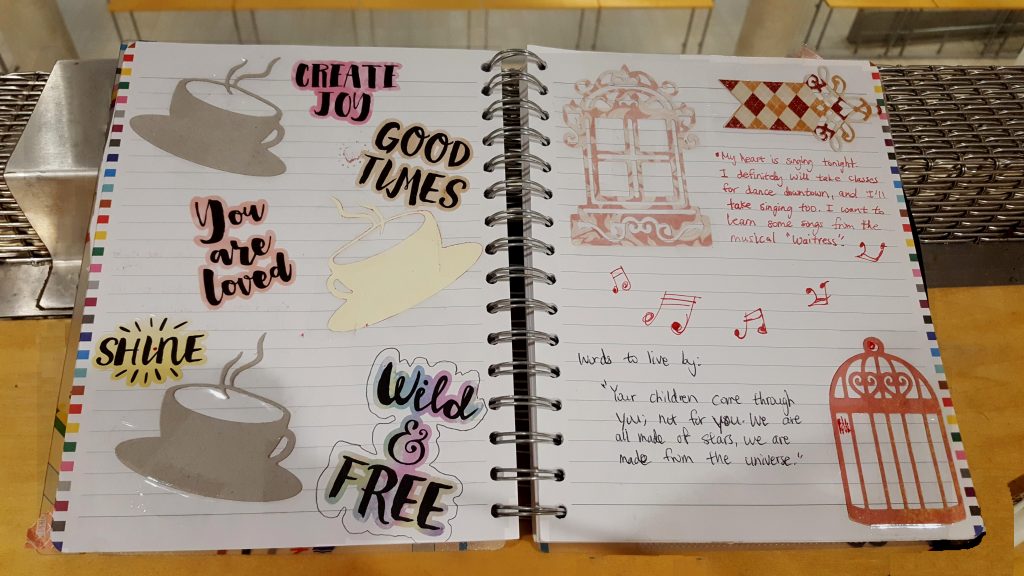 CREATE
JOY
GOOD
TIMES
You
are
loved
SHINE
Wild
&
FREE
"My heart is singing tonight.
I definitely will take classes
for dance downtown, and I'll
take singing too. I want to
learn some songs from the
musical "Waitress".
Words to live by:
"Your children come through
you, not for you. We are
all made of stars, we are
made from the universe."